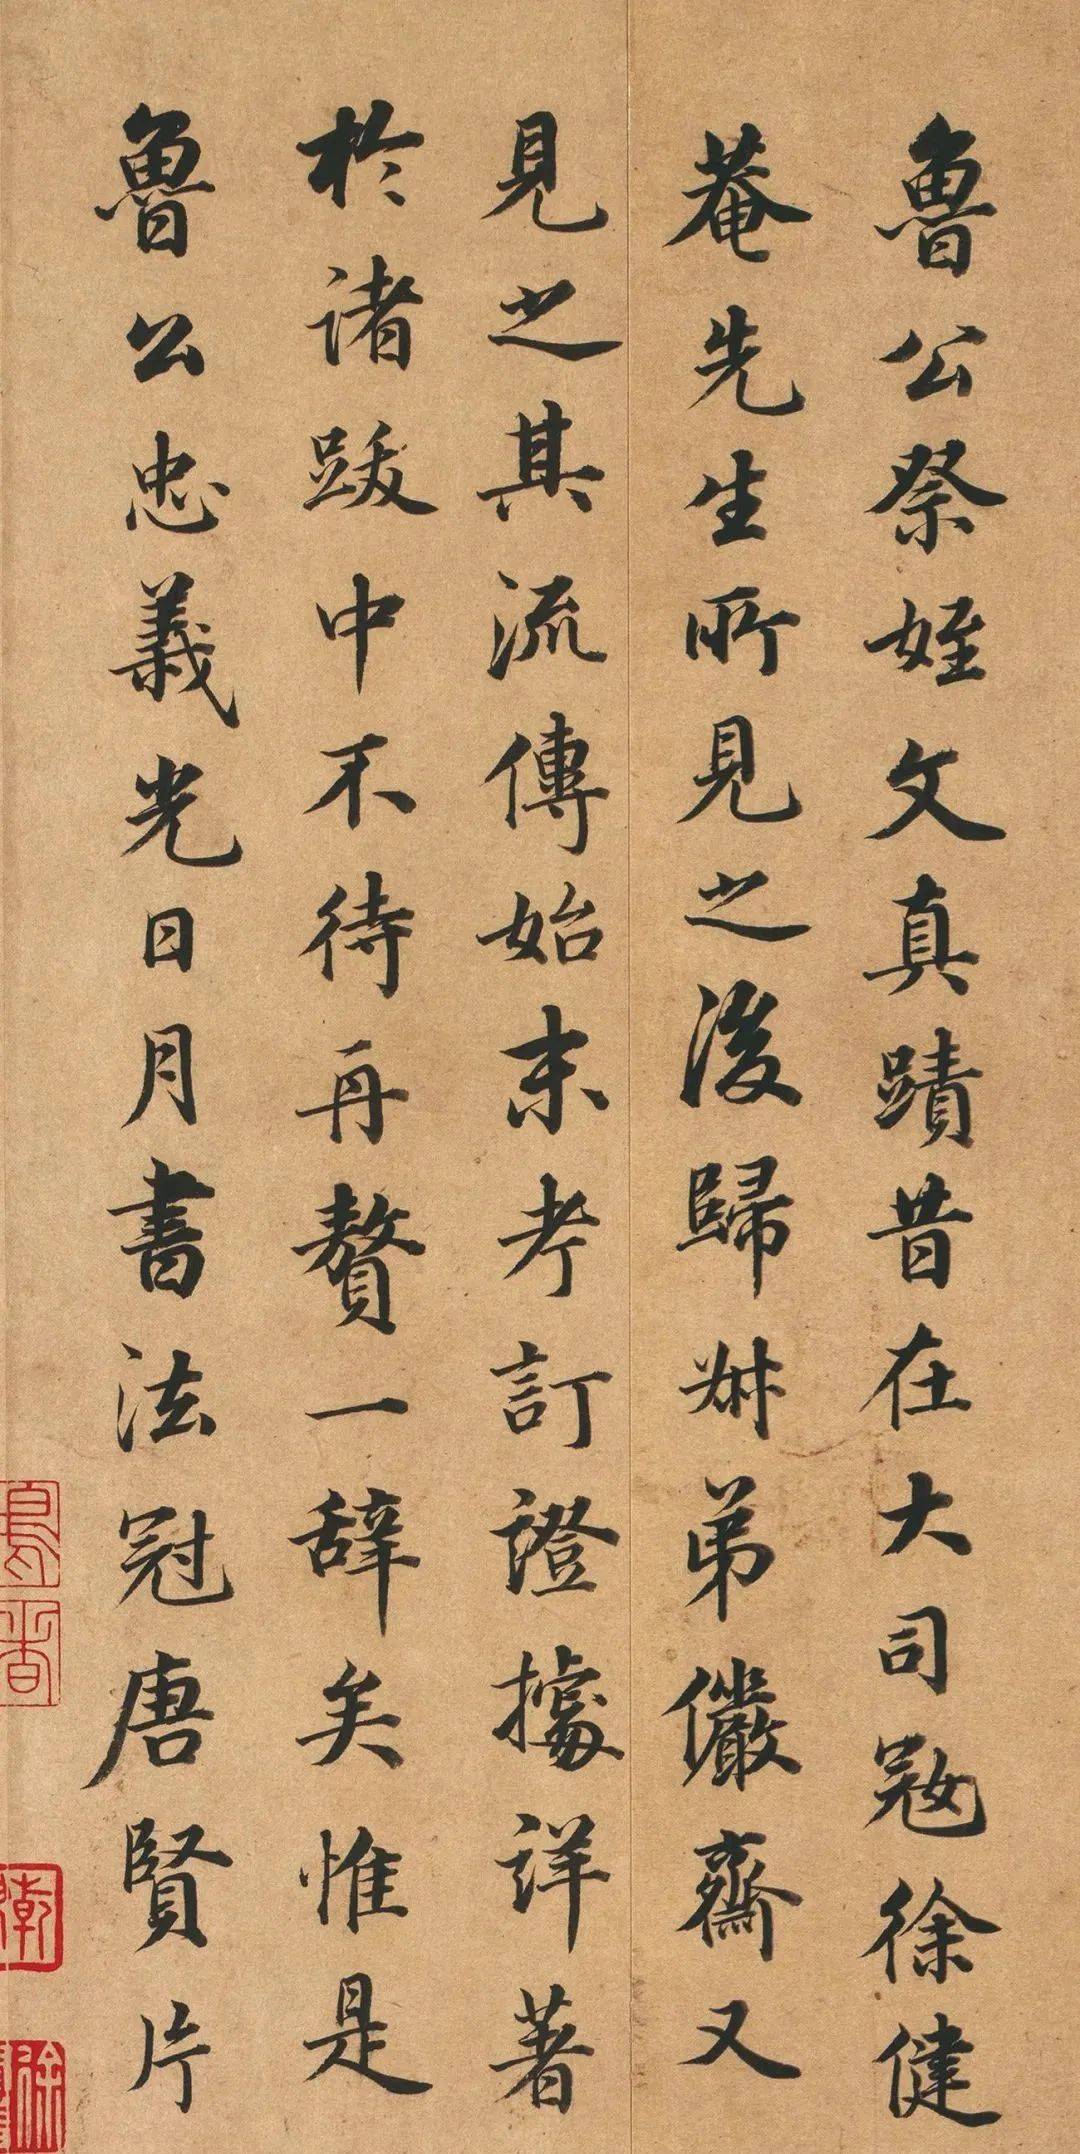 魯公祭姪文真蹟昔在大司寇徐健
菴先生所見之後歸叔弟儼齋又
見之其流傳始末考訂證據詳著
於諸跋中不待再贅一辞矣惟是
魯公忠義光日月書法冠唐賢片